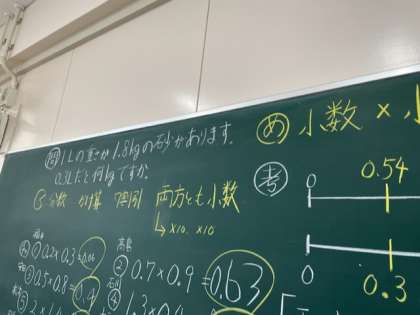 問 1Lの重さが1.8kgの砂があります。
0.3Lだと何kgですか。
め 小数×小
考
0.54
0
0
0.3
分数 かけ算 両方とも小数
↳×10、×10
① 0.2×0.3=0.06
0.5×0.8
② 0.7×0.9=0.63
④
⑤